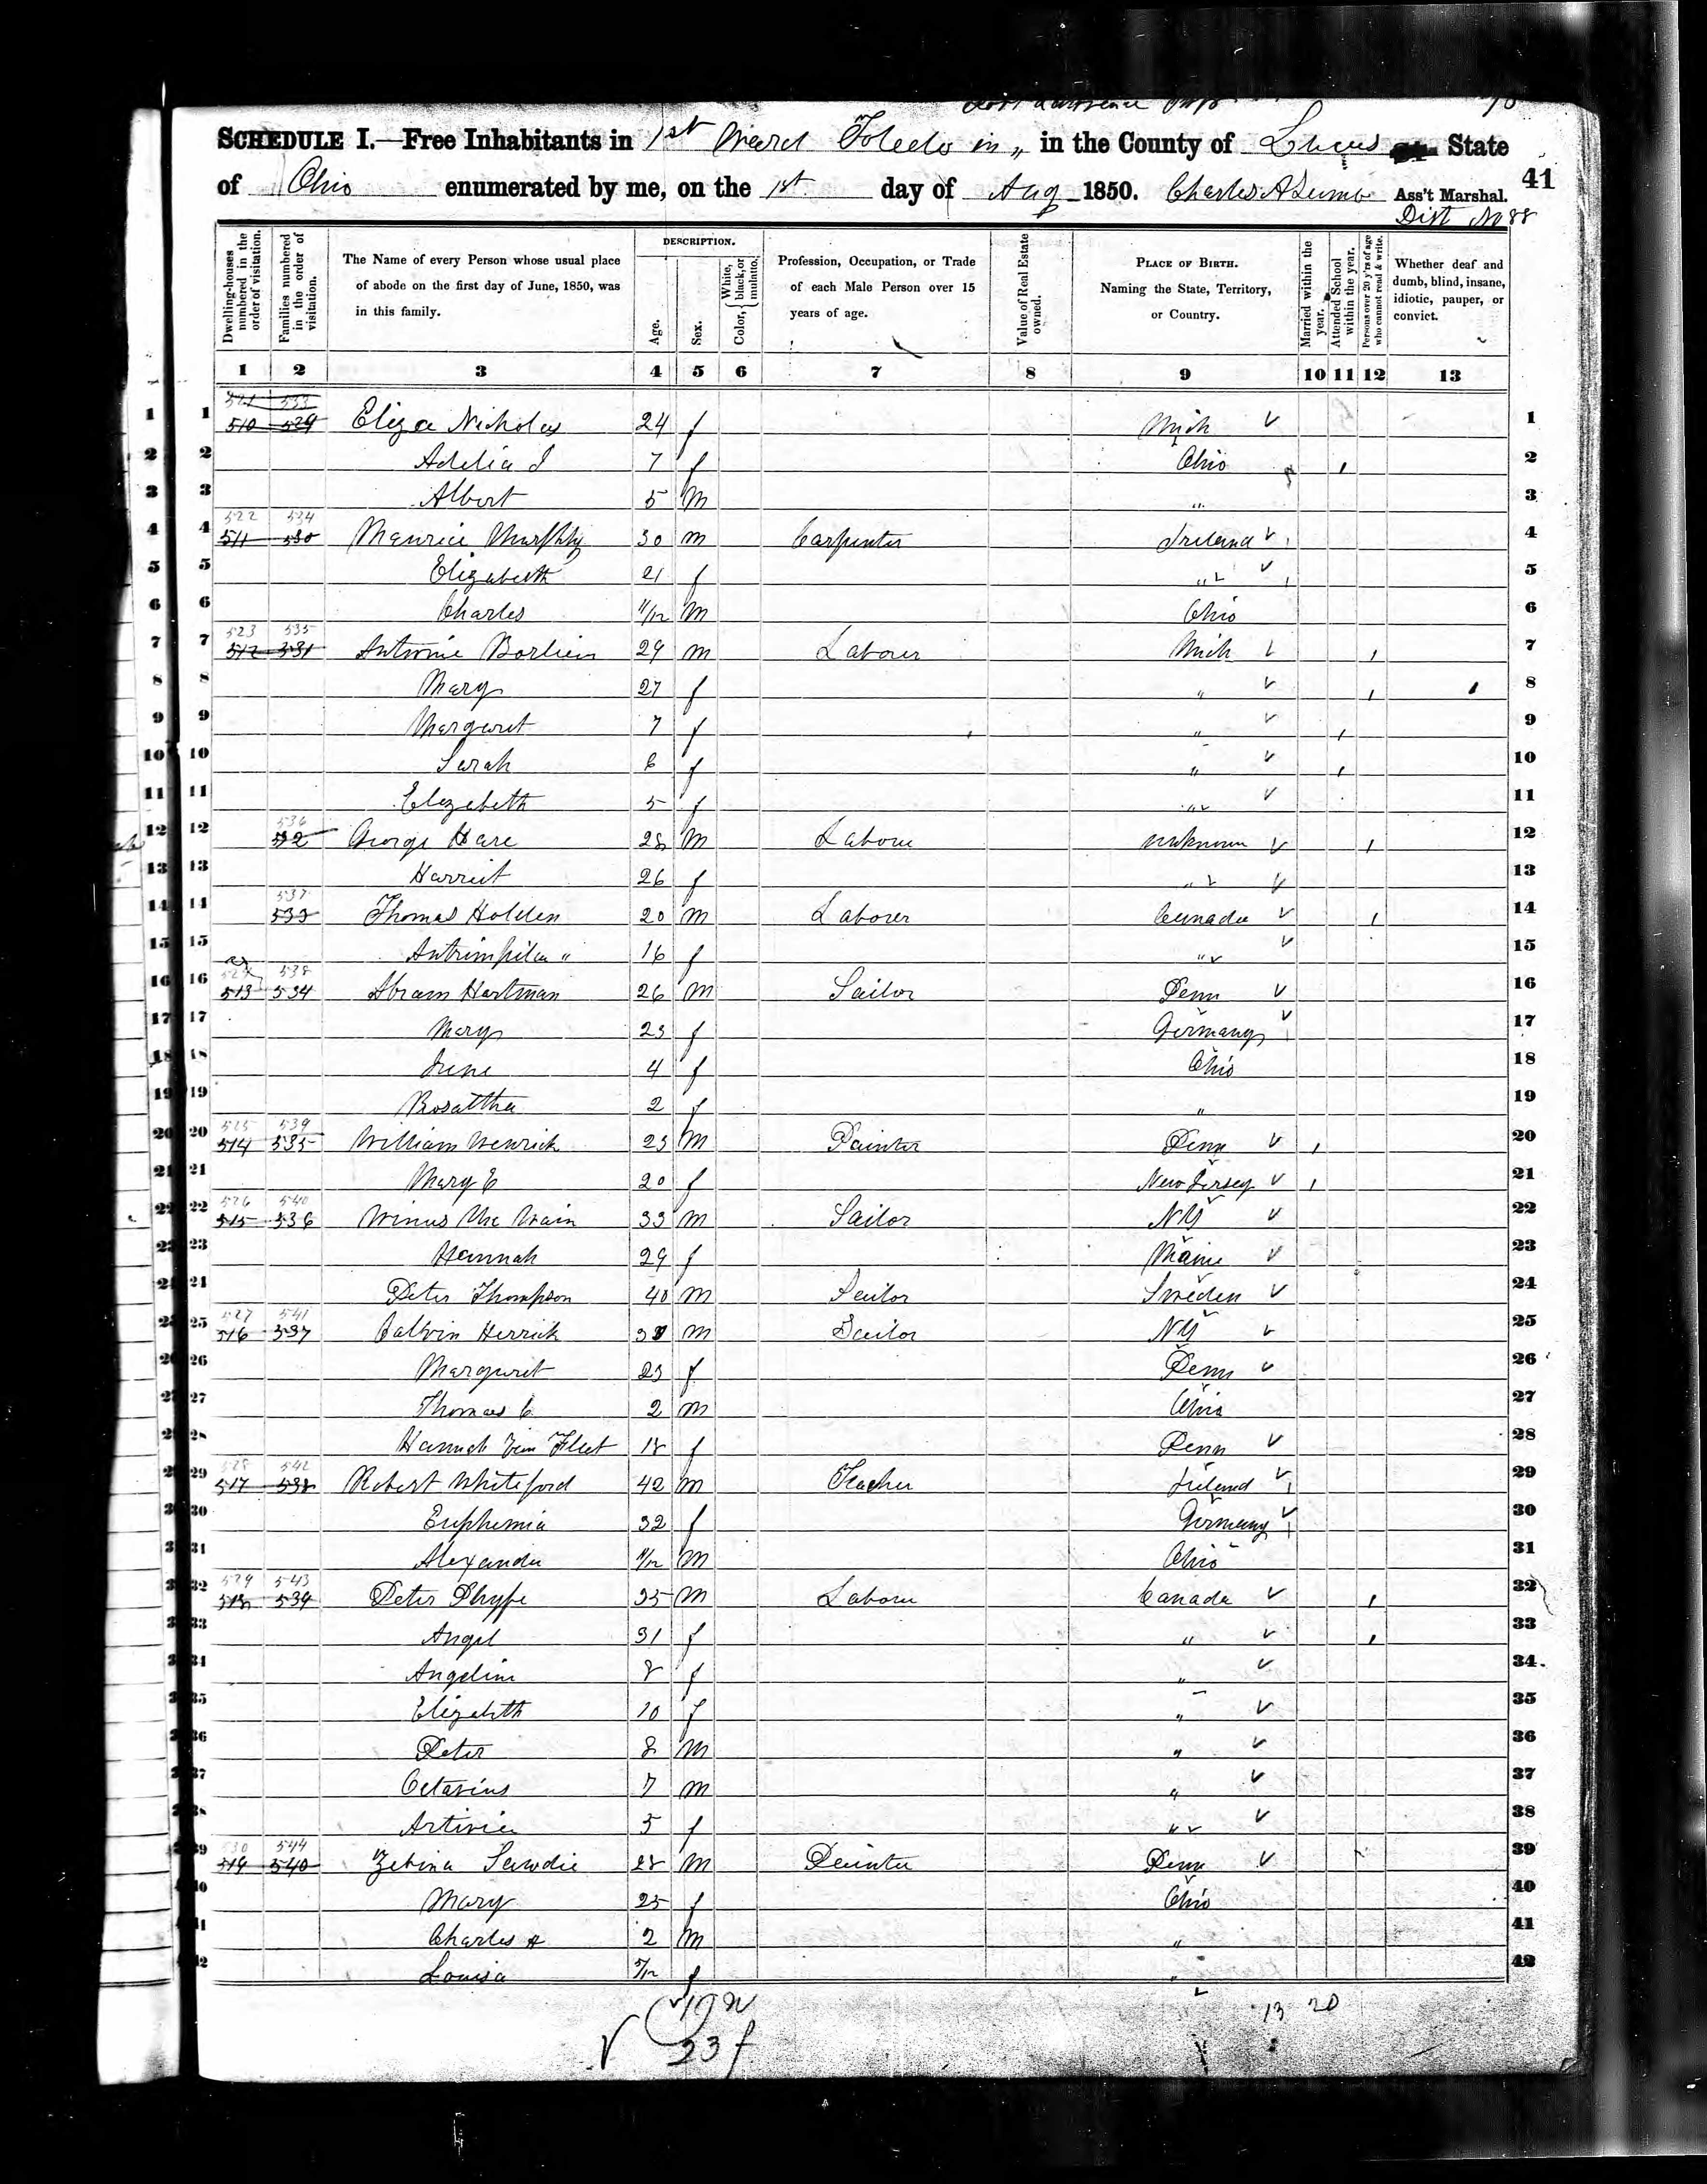 SCHEDULE I.—Free Inhabitants in 1st Ward Toledo in „ in the County of Lucas State
of Ohio enumerated by me, on the 1st day of Aug 1850. Charles A Ass't Marshal.
41
Dist No 88
Dwelling-houses numbered in the order of visitation.
Families numbered in the order of visitation.
The Name of every Person whose usual place of abode on the first day of June, 1850, was in this family.
DESCRIPTION.
Age.
Sex.
Color, { White, black, or mulatto.
Profession, Occupation, or Trade of each Male Person over 15 years of age.
Value of Real Estate owned.
PLACE OF BIRTH. Naming the State, Territory, or Country.
Married within the year.
Attended School within the year.
Persons over 20 y'rs of age who cannot read & write.
Whether deaf and dumb, blind, insane, idiotic, pauper, or convict.
1 2 3 4 5 6 7 8 9 10 11 12 13
521 533
1 510 529 Eliza Nicholas 24 f Mich 1
2 Adelia J 7 f Ohio 2
3 Albert 5 m " 3
522 534
4 511 530 Maurice Murphy 30 m Carpenter Ireland 4
5 Elizabeth 21 f " 5
6 Charles 11/12 m Ohio 6
523 535
7 512 531 Antoine 29 m Labourer Mich 7
8 Mary 27 f " 8
9 Margaret 7 f " 9
10 Sarah 6 f " 10
11 Elizabeth 5 f " 11
536
12 532 George Hare 28 m Labourer unknown 12
13 Harriet 26 f " 13
537
14 533 Thomas Holden 20 m Labourer Canada 14
15 " 16 f " 15
524 538
16 513 534 Abram Hartman 26 m Sailor Penn 16
17 Mary 23 f Germany 17
18 Irene 4 f Ohio 18
19 Rosaltha 2 f " 19
525 539
20 514 535 William Wenrick 23 m Painter Penn 20
21 Mary E 20 f New Jersey 21
526 540
22 515 536 33 m Sailor NY 22
23 Hannah 29 f Maine 23
24 Peter Thompson 40 m Sailor Sweden 24
527 541
25 516 537 Calvin Herrick m Sailor NY 25
26 Margaret 23 f Penn 26
27 Thomas C 2 m Ohio 27
28 Hannah Van Fleet 18 f Penn 28
528 542
29 517 538 Robert Whiteford 42 m Teacher Ireland 29
30 Euphemia 32 f Germany 30
31 Alexander m Ohio 31
529 543
32 518 539 Peter 35 m Labourer Canada 32
33 Angel 31 f " 33
34 Angeline 8 f " 34
35 Elizabeth 10 f " 35
36 Peter 8 m " 36
37 Octavius 7 m " 37
38 5 f " 38
530 544
39 519 540 Zebina 28 m Painter Penn 39
40 Mary 25 f Ohio 40
41 Charles A 2 m " 41
42 Louisa 5/12 f " 42
19 m
23 f
13 20